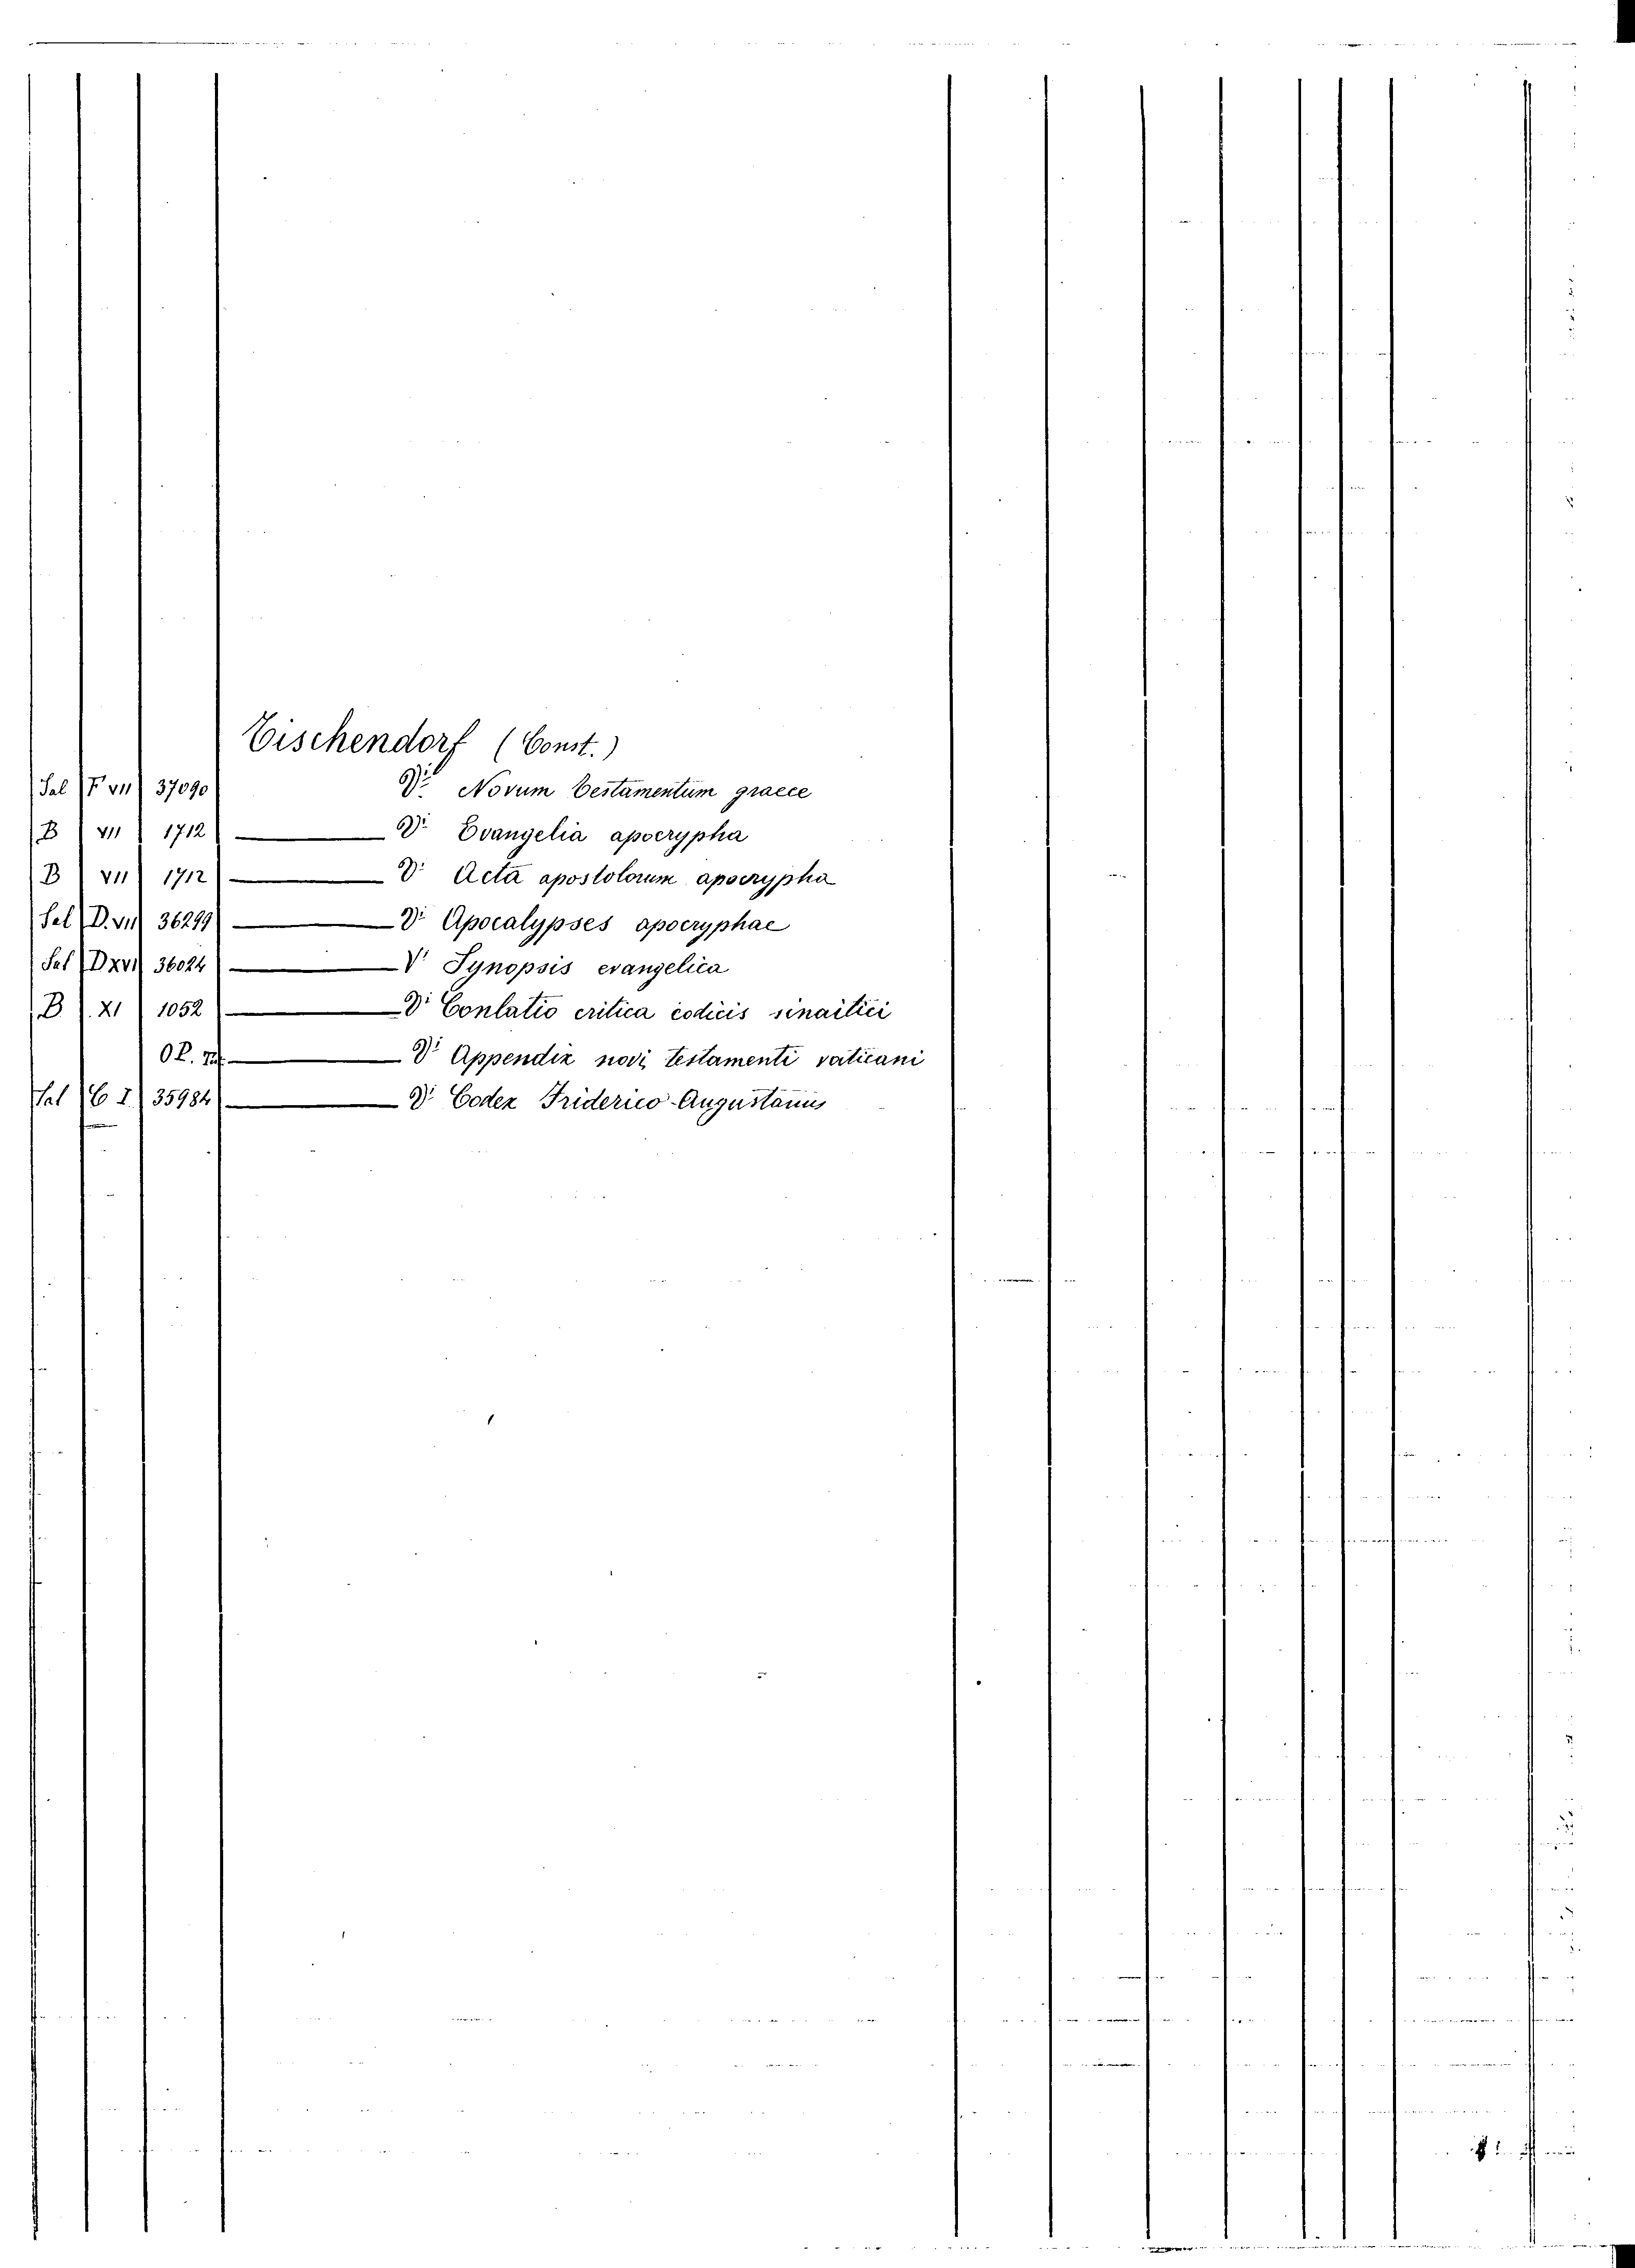 Tischendorf (Const.)
Sal F VII 37090 Vi. Novum Testamentum graece
B VII 1712 — Vi. Evangelia apocrypha
B VII 1712 — Vi Acta apostolorum apocrypha
Sal D. VII 36299 — Vi Apocalypses apocryphae
Sal D XVI 36024 — Vi Synopsis evangelica
B. XI 1052 — Vi Conlatio critica codicis sinaitici
OP. — Vi Appendix novi testamenti vaticani
Sal C I. 35984 — Vi Codex Friderico-Augustanus